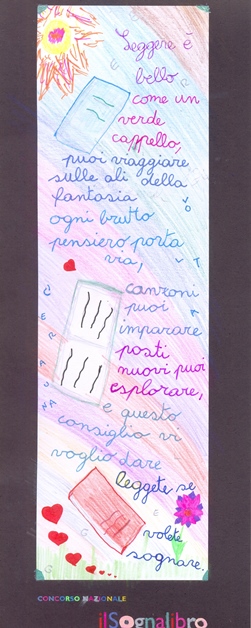 Leggere è
bello
come un
verde
cappello,
puoi viaggiare
sulle ali della
fantasia
ogni brutto
pensiero porta
via,
canzoni
puoi
imparare
posti
nuovi puoi
esplorare,
e questo
consiglio vi
voglio dare
leggete se
volete
sognare.
C'ERA UNA
CONCORSO NAZIONALE
ilSognalibro